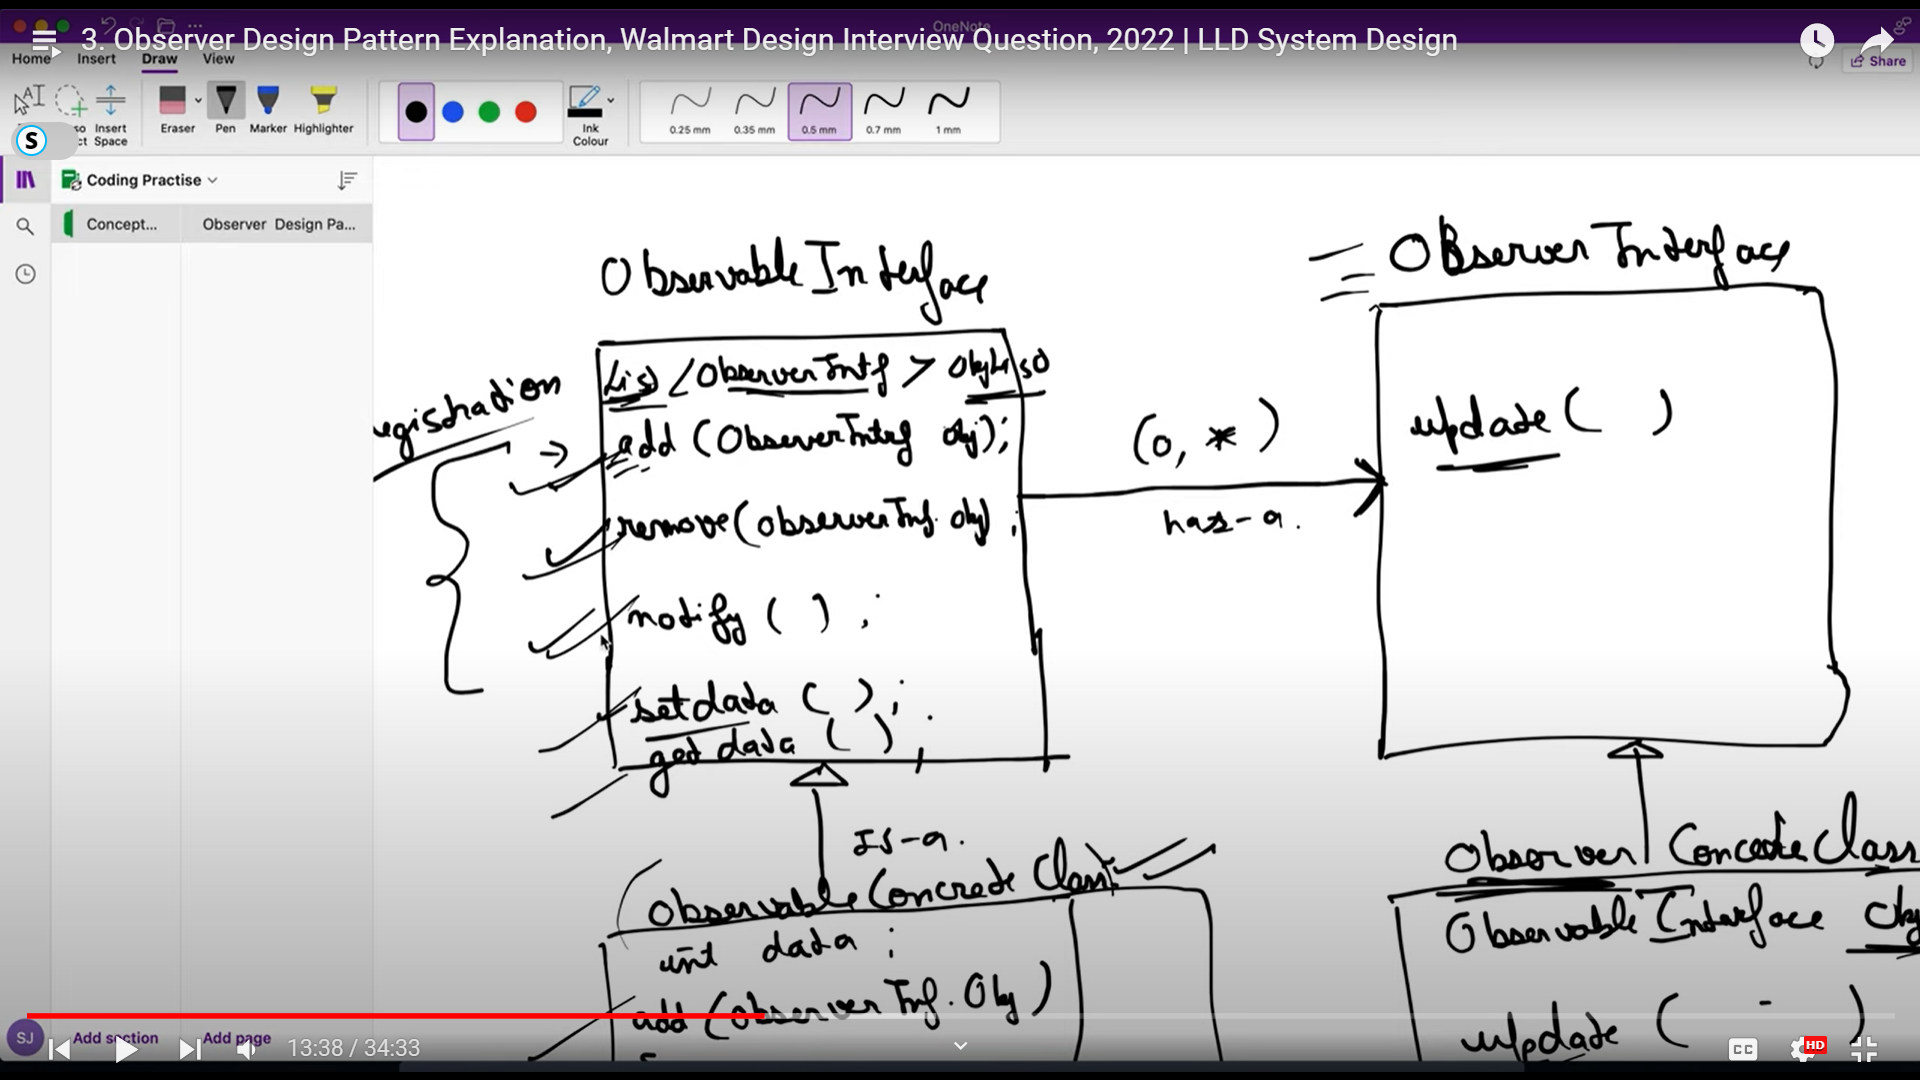 OneNote
3. Observer Design Pattern Explanation, Walmart Design Interview Question, 2022 | LLD System Design
Home Insert Draw View
Share
Insert Space
Eraser
Pen
Marker
Highlighter
Ink Colour
0.25 mm
0.35 mm
0.5 mm
0.7 mm
1 mm
S
Coding Practise
Concept...
Observer Design Pa...
Observable Interface
List <ObserverIntf >
add (ObserverIntrf obj);
remove(observerInf. obj) ;
notify ( ) ;
setdata ( ) ;
get data ( ) ;
egistration
(0, * )
has-a.
OBserver Interface
update ( )
IS-a.
Observable Concrete Class
int data ;
add (observer Inf. Obj )
Observer Class
Observable Interface
update ( )
SJ
Add section
Add page
13:38 / 34:33
CC
HD